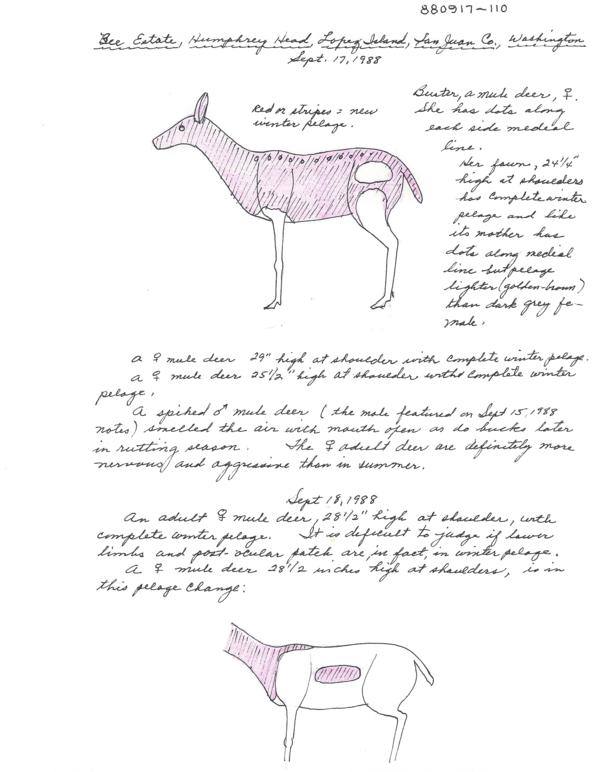 880917-110
Gee Estate, Humphrey Head, Lopez Island, San Juan Co., Washington
Sept. 17, 1988
Red or stripes = new
winter pelage.
Buster, a mule deer, ♀.
She has dots along
each side medial
line.
Her fawn, 24 1/4"
high at shoulders
has complete winter
pelage and like
its mother has
dots along medial
line but pelage
lighter (golden-brown)
than dark grey fe-
male.
A ♀ mule deer 29" high at shoulder with complete winter pelage.
A ♀ mule deer 25 1/2" high at shoulder with complete winter
pelage.
A spiked ♂ mule deer (the male featured on Sept 15, 1988
notes) smelled the air with mouth open as do bucks later
in rutting season. The ♀ adult deer are definitely more
nervous and aggressive than in summer.
Sept 18, 1988
An adult ♀ mule deer, 28 1/2" high at shoulder, with
complete winter pelage. It is deficult to judge if lower
limbs and post-ocular patch are, in fact, in winter pelage.
A ♀ mule deer 28 1/2 inches high at shoulders, is in
this pelage change: